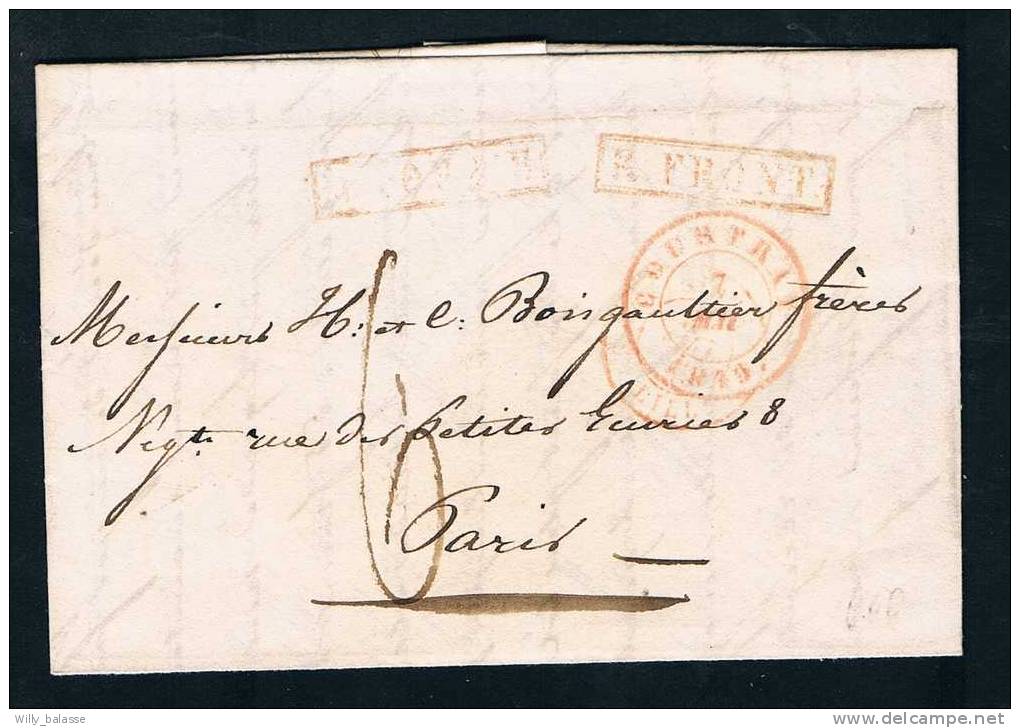 R. FRONT.
COURTRAI
7
MAI
1849
Messieurs H. et C. Boisgaultier frères
Negts. rue des petites Ecuries 8
6
Paris
Willy_balasse
delcampe.net